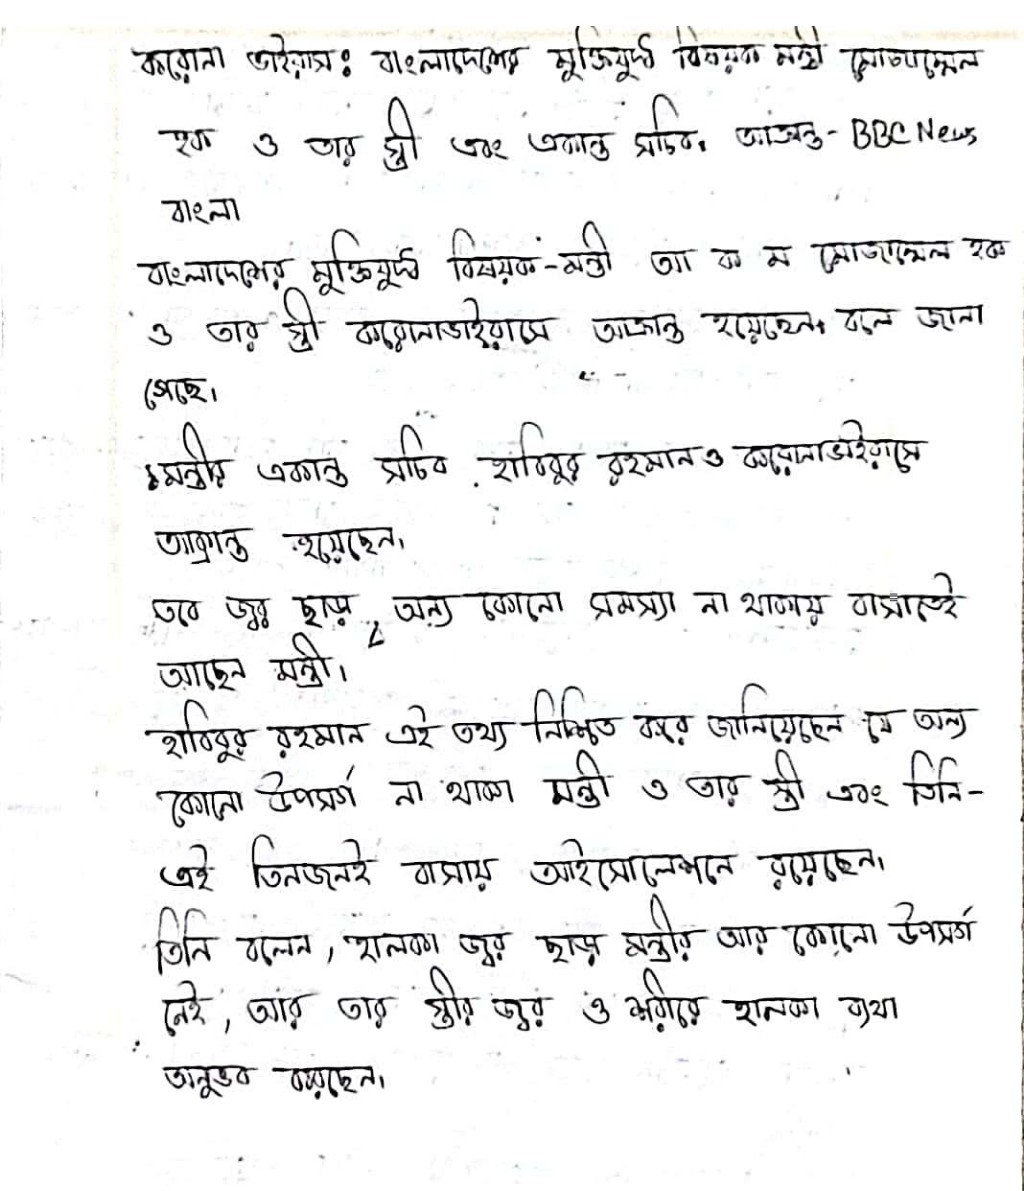 করোনা ভাইরাস: বাংলাদেশের মুক্তিযুদ্ধ বিষয়ক মন্ত্রী মোজাম্মেল
হক ও তার স্ত্রী এবং একান্ত সচিব আক্রান্ত - BBC News
বাংলা
বাংলাদেশের মুক্তিযুদ্ধ বিষয়ক মন্ত্রী আ ক ম মোজাম্মেল হক
ও তার স্ত্রী করোনাভাইরাসে আক্রান্ত হয়েছেন বলে জানা
গেছে।
মন্ত্রীর একান্ত সচিব হাবিবুর রহমানও করোনাভাইরাসে
আক্রান্ত হয়েছেন।
তবে জ্বর ছাড়া অন্য কোনো সমস্যা না থাকায় বাসাতেই
আছেন মন্ত্রী।
হাবিবুর রহমান এই তথ্য নিশ্চিত করে জানিয়েছেন যে অন্য
কোনো উপসর্গ না থাকা মন্ত্রী ও তার স্ত্রী এবং তিনি-
এই তিনজনই বাসায় আইসোলেশনে রয়েছেন।
তিনি বলেন, হালকা জ্বর ছাড়া মন্ত্রীর আর কোনো উপসর্গ
নেই, আর তার স্ত্রীর জ্বর ও শরীরে হালকা ব্যথা
অনুভব করছেন।